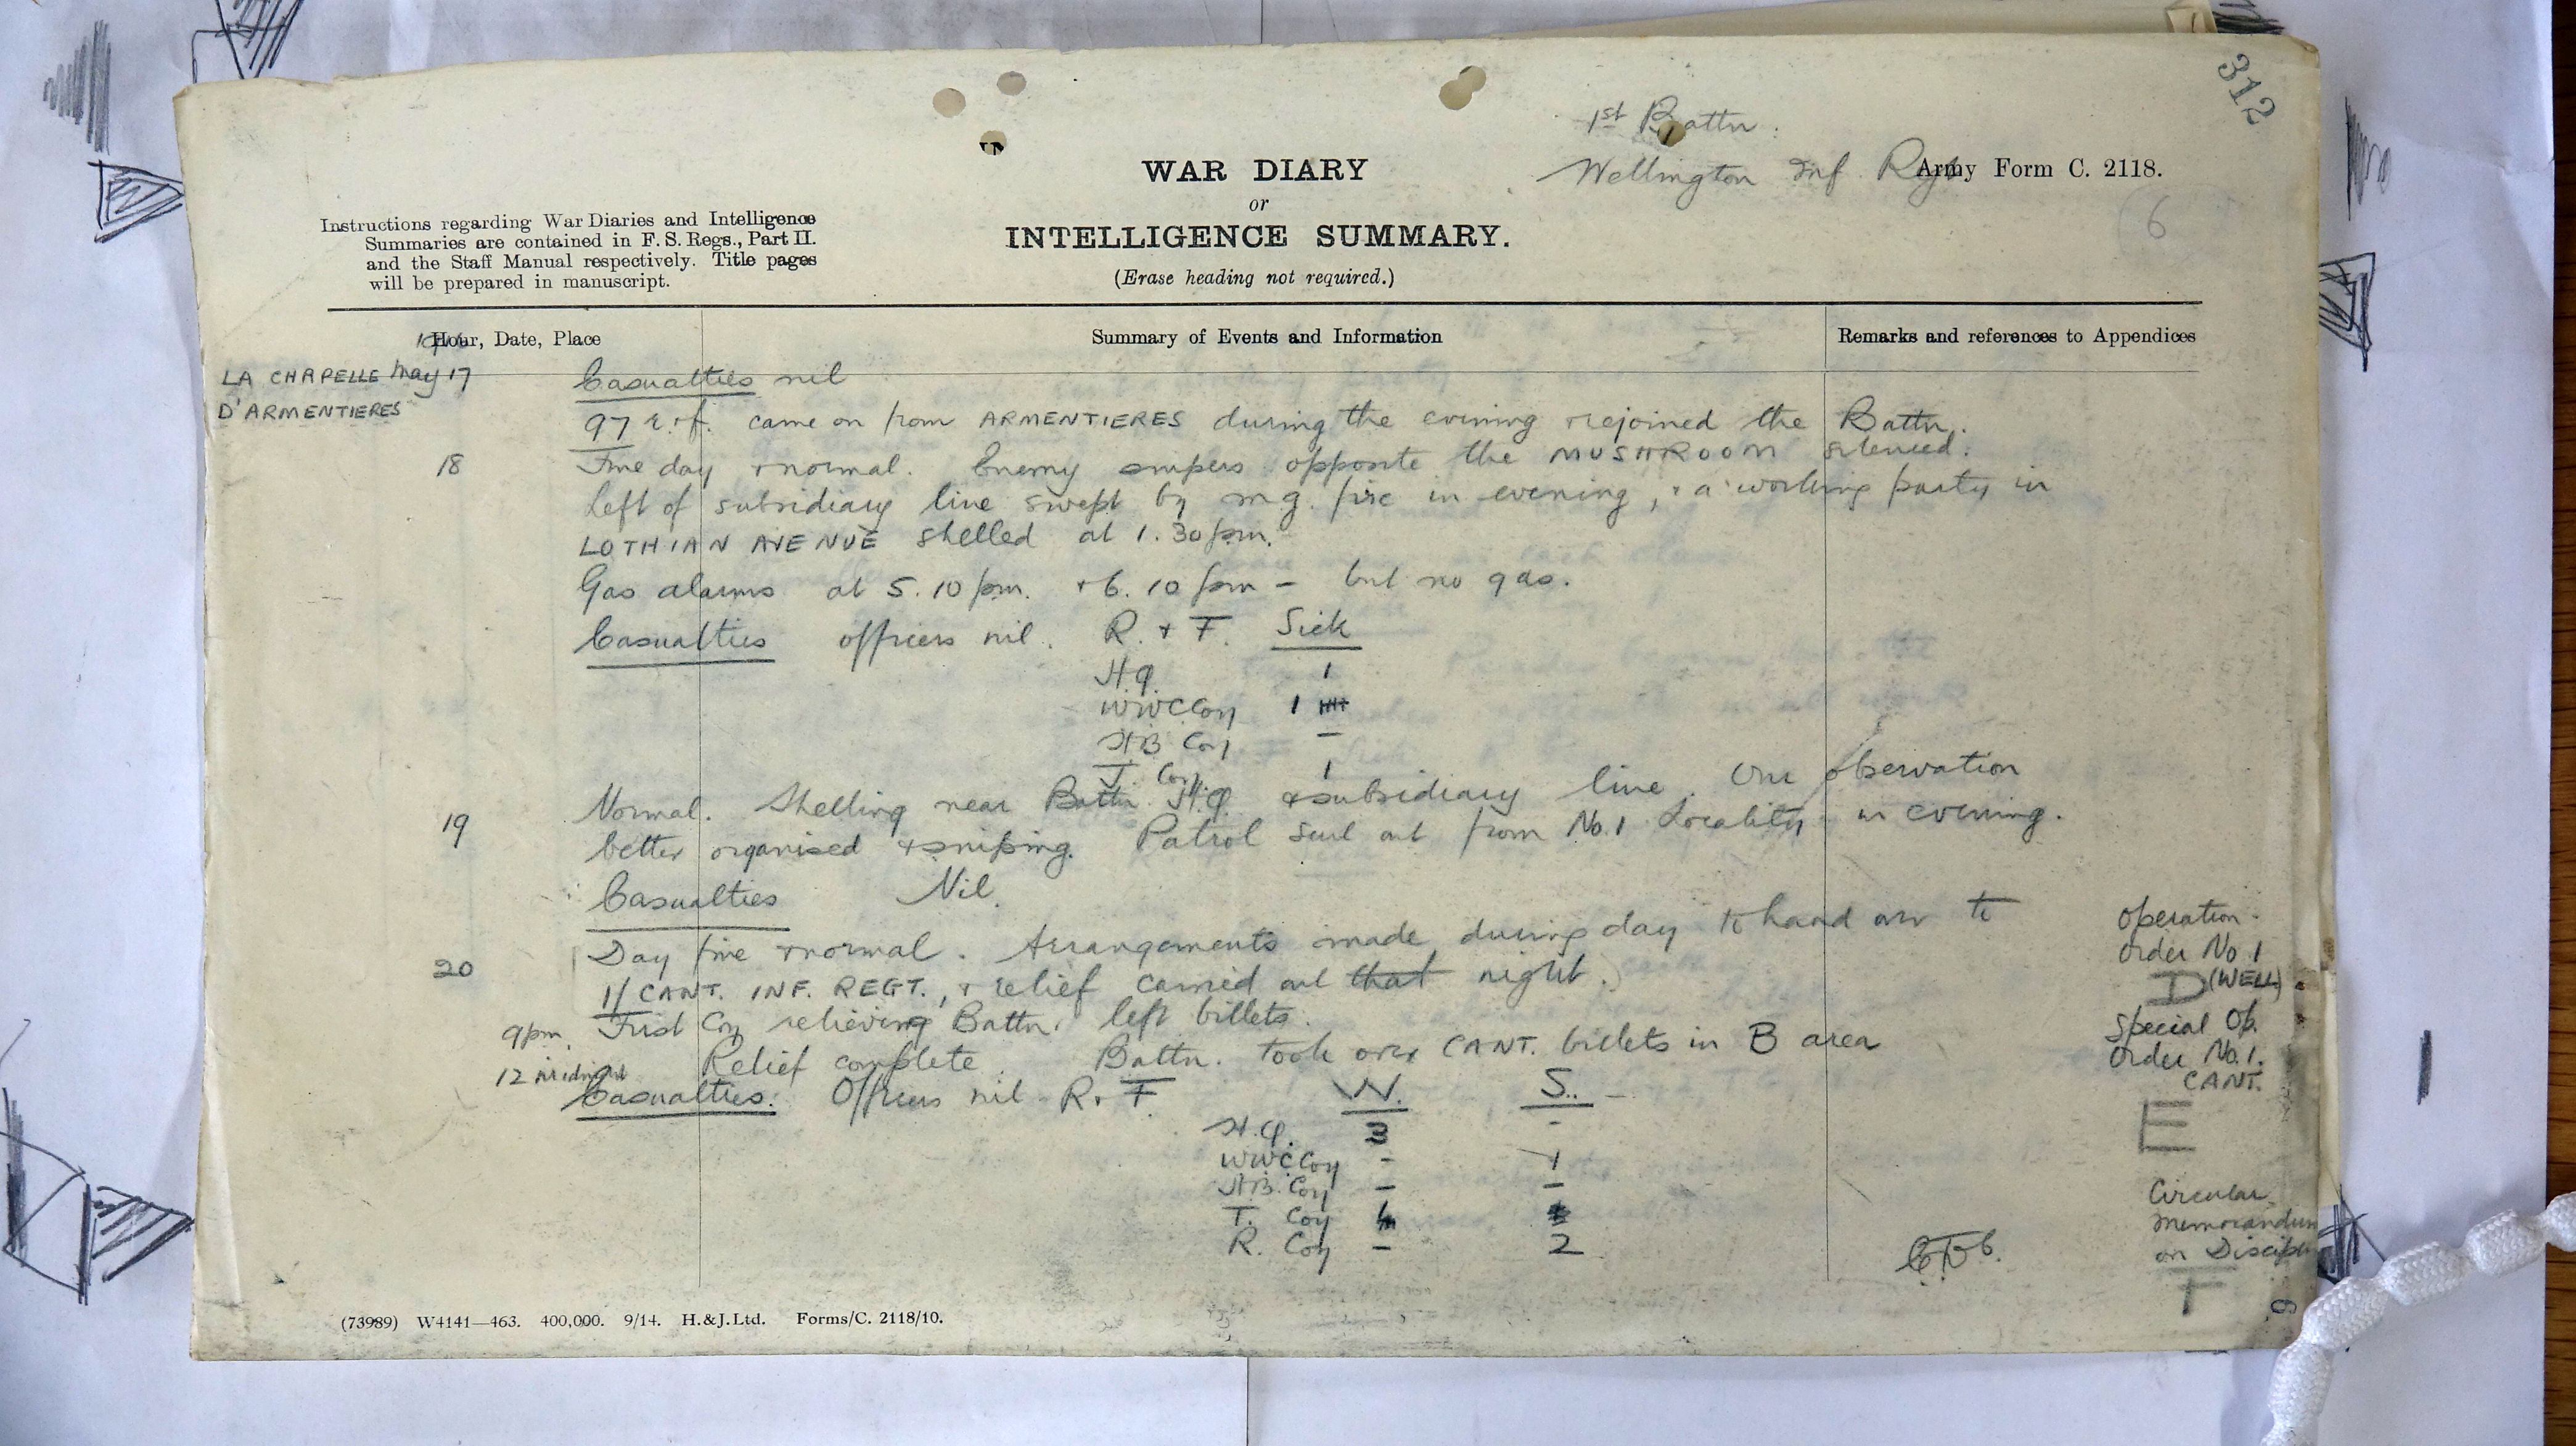 312
1st Battn.
Wellington Inf Regt
Army Form C. 2118.
6
WAR DIARY
or
INTELLIGENCE SUMMARY.
(Erase heading not required.)
Instructions regarding War Diaries and Intelligence
Summaries are contained in F. S. Regs., Part II.
and the Staff Manual respectively. Title pages
will be prepared in manuscript.
Hour, Date, Place
Summary of Events and Information
Remarks and references to Appendices
LA CHAPELLE May 17
D'ARMENTIERES
Casualties nil
97 r.+f. came on from ARMENTIERES during the evening & rejoined the Battn.
18
Fine day & normal. Enemy snipers opposite the MUSHROOM silenced.
Left of subsidiary line swept by m.g. fire in evening, & a working party in
LOTHIAN AVENUE shelled at 1.30 pm.
Gas alarms at 5.10 pm. & 6.10 pm – but no gas.
Casualties officers nil. R. + F. Sick
H.Q. 1
WWC Coy 1
H.B Coy –
T. Coy. 1
19
Normal. Shelling near Battn. H.Q. & subsidiary line. Our observation
better organised & sniping. Patrol sent out from No. 1 Locality in evening.
Casualties Nil.
20
Day fine & normal. Arrangements made during day to hand over to
1/ CANT. INF. REGT., & relief carried out that night.
9pm. First Coy relieving Battn. left billets.
12 midnight Relief complete. Battn. took over CANT. billets in B area
Casualties. Officers nil R. F. W. S.
H.Q. 3 -
WWC Coy - 1
H.B. Coy – –
T. Coy
R. Coy – 2
Operation
Order No 1
D (WELL)
Special Op.
Order No. 1.
CANT.
E
Circular
Memorandum
on Discipline
F
(73989) W4141—463. 400,000. 9/14. H. & J. Ltd. Forms/C. 2118/10.